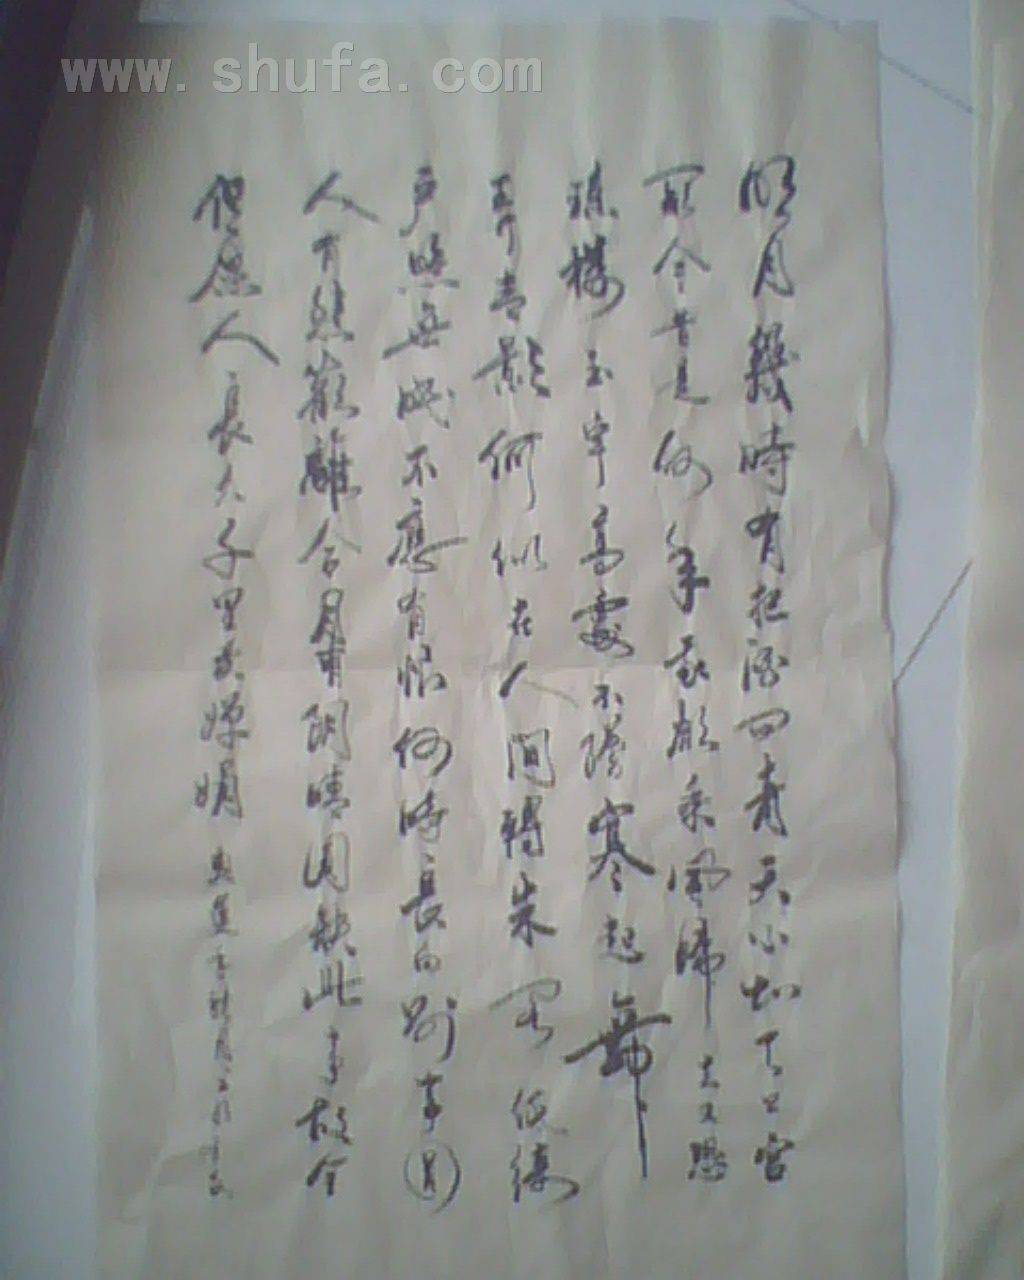 www.shufa.com
明月幾時有把酒問青天不知天上宮
闕今昔是何年我欲乘風歸去又恐
瓊樓玉宇高處不勝寒起舞
弄清影何似在人間轉朱閣低綺
戶照無眠不應有恨何時長向別事圓
人有悲歡離合月有陰晴圓缺此事故今
但愿人長久千里共嬋娟